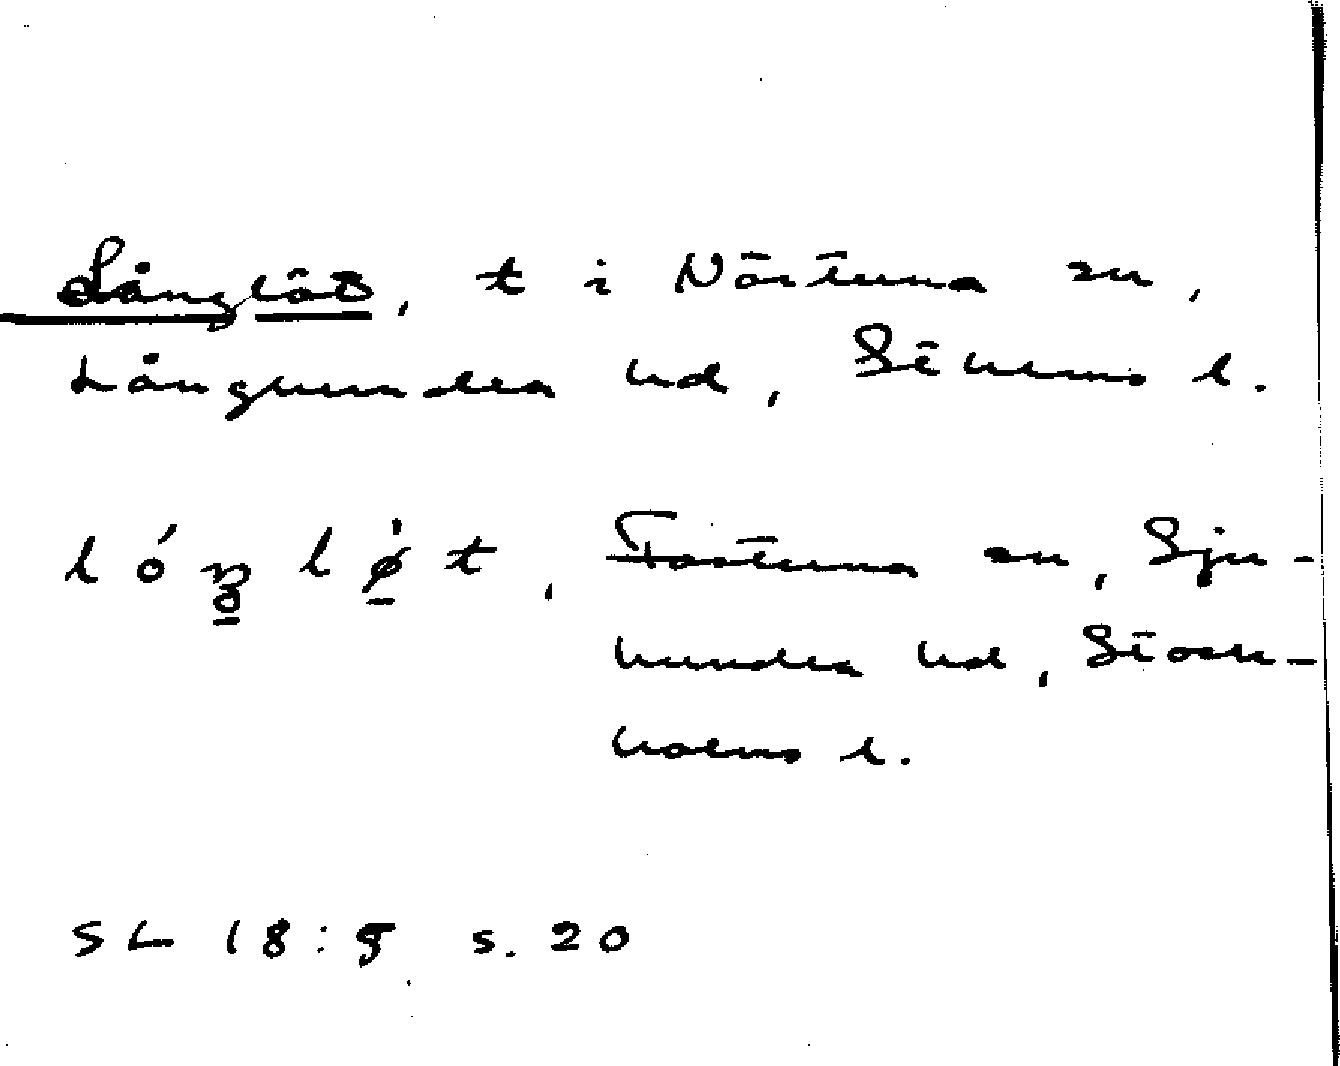 Långlöt, t i Närtuna sn,
Långhundra hd, Sthlms l.
lóŋløt, Fasterna sn, Sju-
hundra hd, Stock-
holms l.
SL 18:5 s. 20